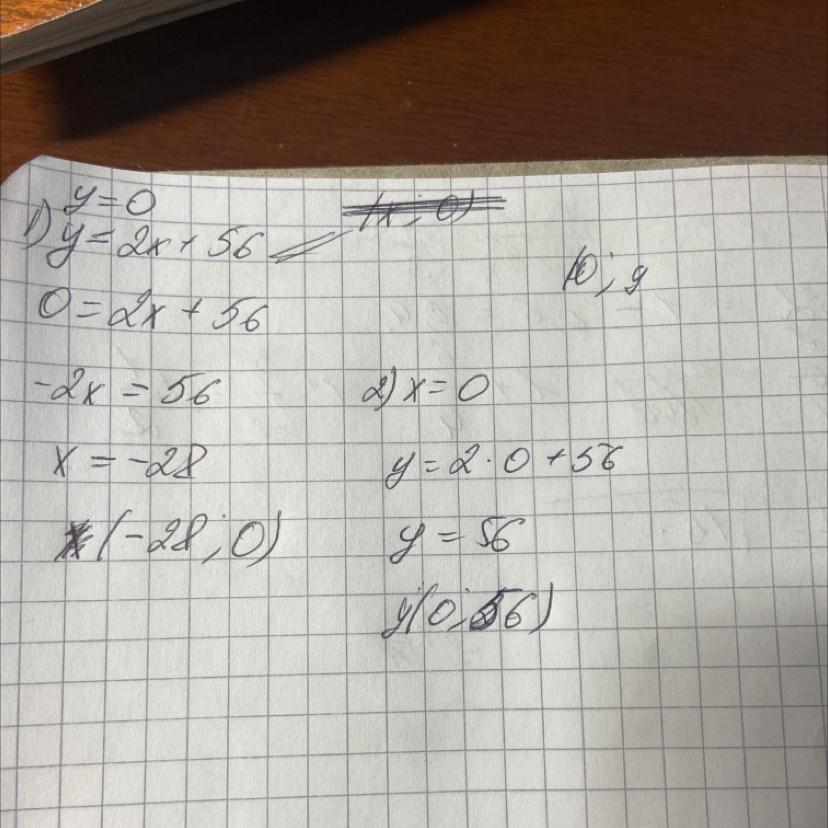 y=0
1) y=2x+56
(x; 0)
(0; y
0=2x+56
-2x=56
x=-28
(-28; 0)
2) x=0
y=2·0+56
y=56
y(0; 56)